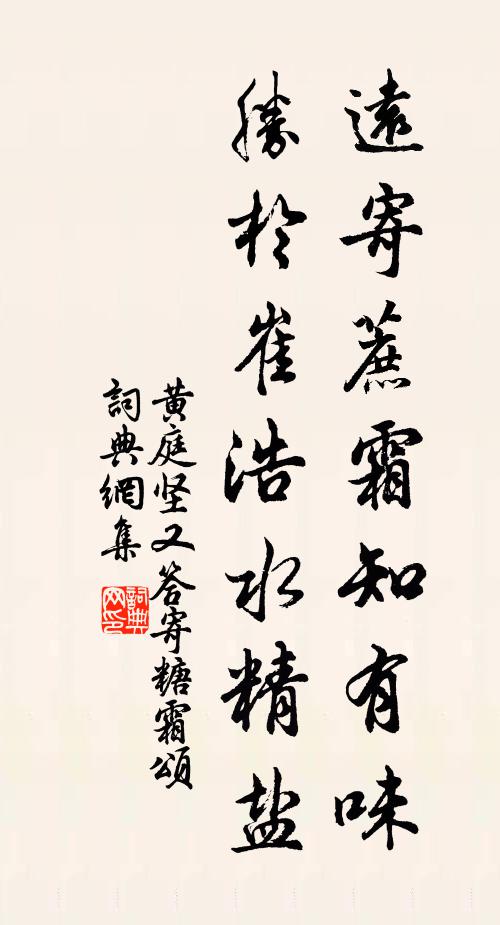 遠寄蔗霜知有味
勝於崔浩水精盐
黄庭坚又答寄糖霜頌
詞典網集
詞典网印